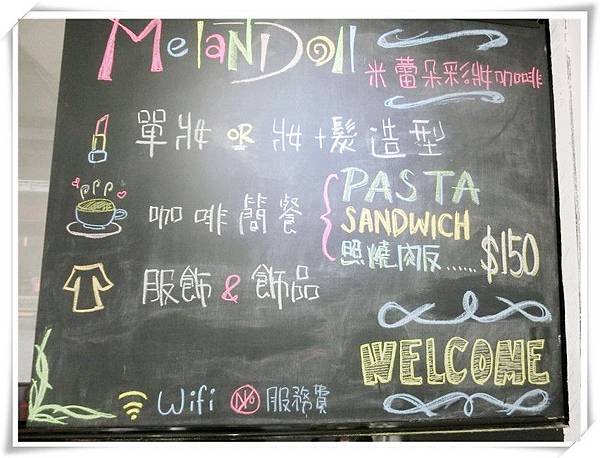 MelanDoll
米蕾朵彩妝咖啡
單妝 OR 妝+髮造型
咖啡簡餐
PASTA
SANDWICH
照燒肉飯...... $150
服飾 & 飾品
WELCOME
Wifi No 服務費